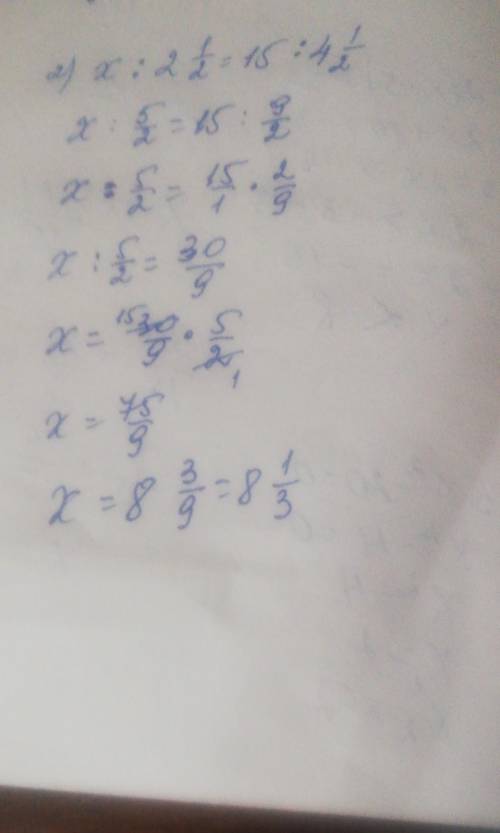 2) x : 2 1/2 = 15 : 4 1/2
x : 5/2 = 15 : 9/2
x : 5/2 = 15/1 · 2/9
x : 5/2 = 30/9
x = 15 30/9 · 5/2 1
x = 75/9
x = 8 3/9 = 8 1/3